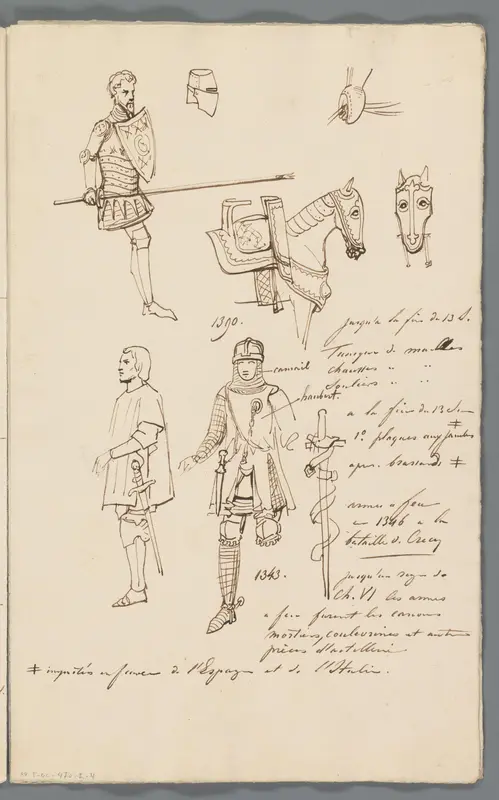 1390.
jusqu'à la fin du 13 S.
Tunique de mailles
chausses " "
Souliers " "
camail
haubert
a la fin du 13 S
1º plaques aux jambes ‡
apr. brassards ‡
armes a feu
en 1346 a la
bataille de Crecy
1343.
jusqu'au regne de
Ch. VI les armes
a feu furent les canons
mortiers, couleuvrines et autres
pièces d'artillerie
‡ importés en france de l'Espagne et de l'Italie.